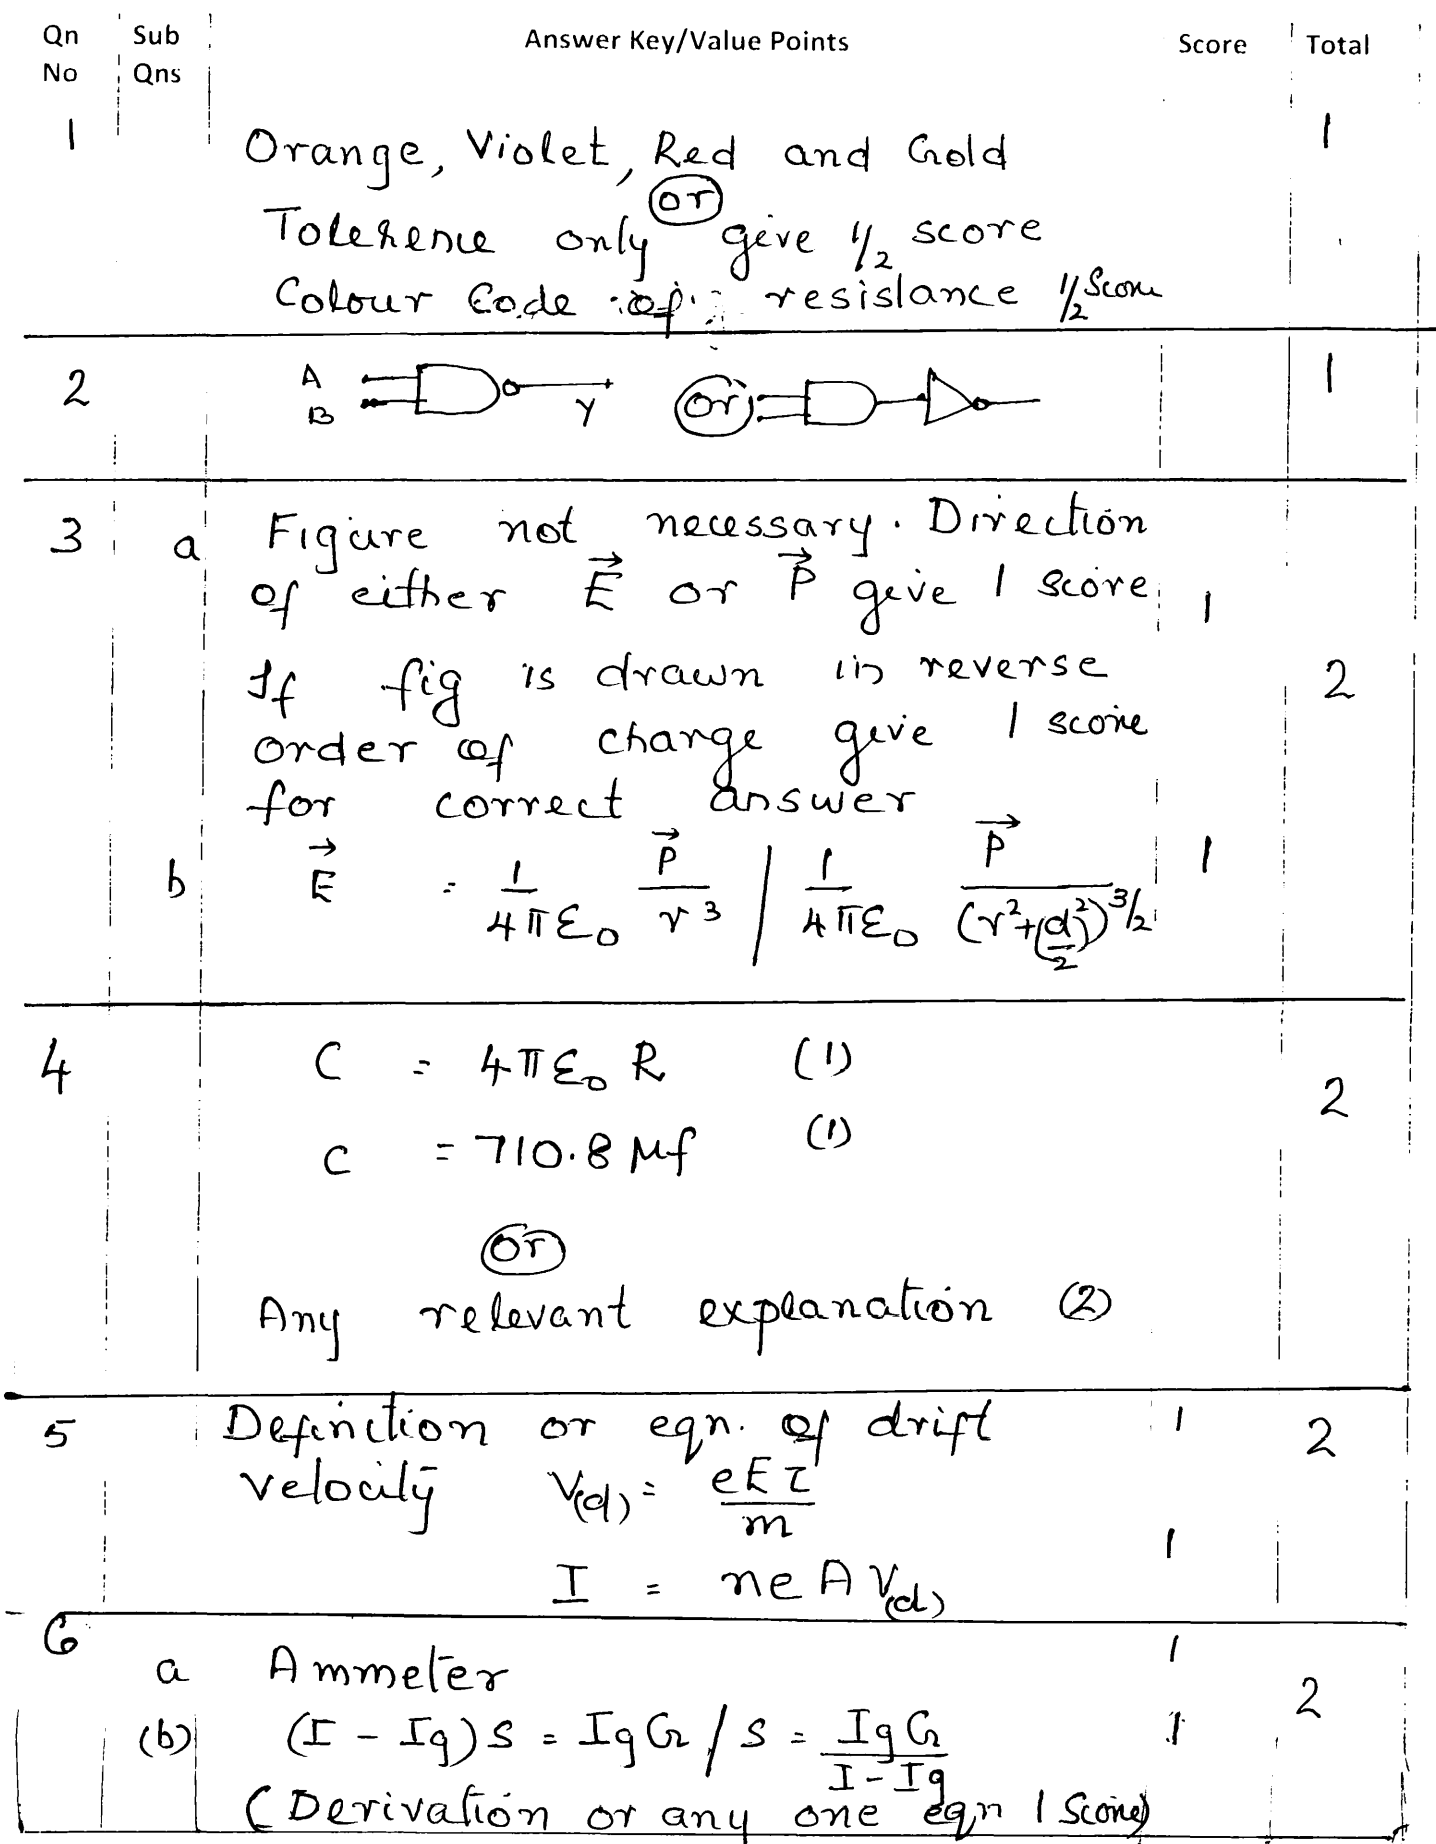 Qn No Sub Qns Answer Key/Value Points Score Total
1 Orange, Violet, Red and Gold 1
(or)
Tolerence only give 1/2 score
Colour Code of resistance 1/2 Score
2 A B Y (or) 1
3 a Figure not necessary. Direction
of either E⃗ or P⃗ give 1 score 1
If fig is drawn in reverse 2
order of charge give 1 score
for correct answer
b E⃗ = 1/4πε₀ P⃗/r³ / 1/4πε₀ P⃗/(r²+(d/2)²)^3/2 1
4 C = 4πε₀ R (1) 2
C = 710.8 μf (1)
(or)
Any relevant explanation (2)
5 Definition or eqn. of drift 1 2
velocity V(d) = eEτ/m
I = neAV(d) 1
6 a Ammeter 1 2
(b) (I - Ig)S = IgG / S = IgG/I-Ig 1
(Derivation or any one eqn 1 Score)